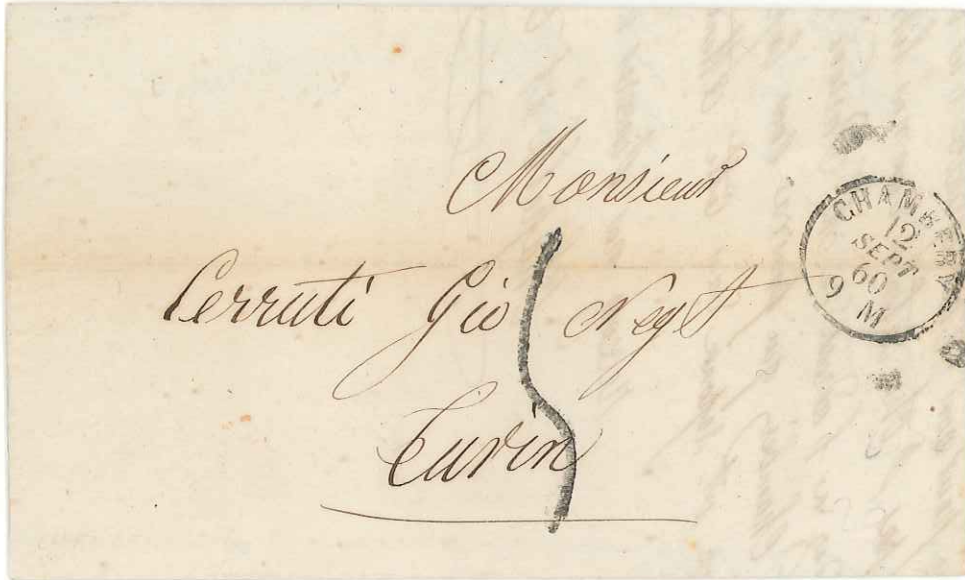 Monsieur
Cerruti Gio Negt
Turin
5
CHAMBERY
12
SEPT
60
9 M